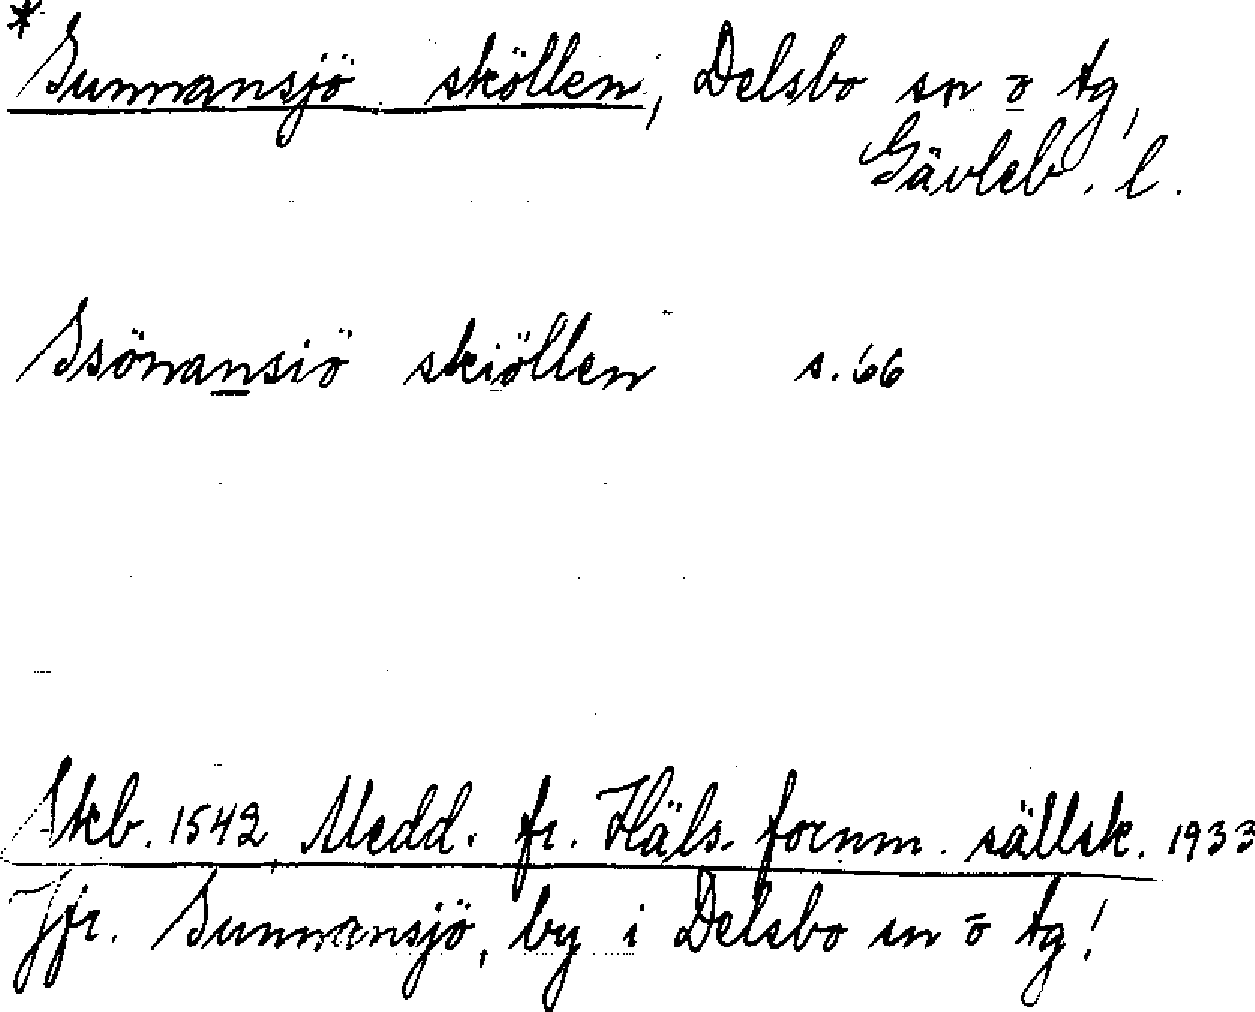 * Sunnansjö sköllen, Delsbo sn o tg,
Gävleb. l.
Ssönansiö skiöllen s. 66
Skb. 1542 Medd. fr. Häls. fornm. sällsk. 1933
Jfr. Sunnansjö, by i Delsbo sn o tg!